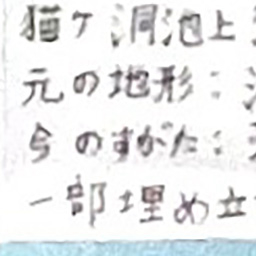 猫ケ洞池上
元の地形:
今のすがた:
一部埋め立